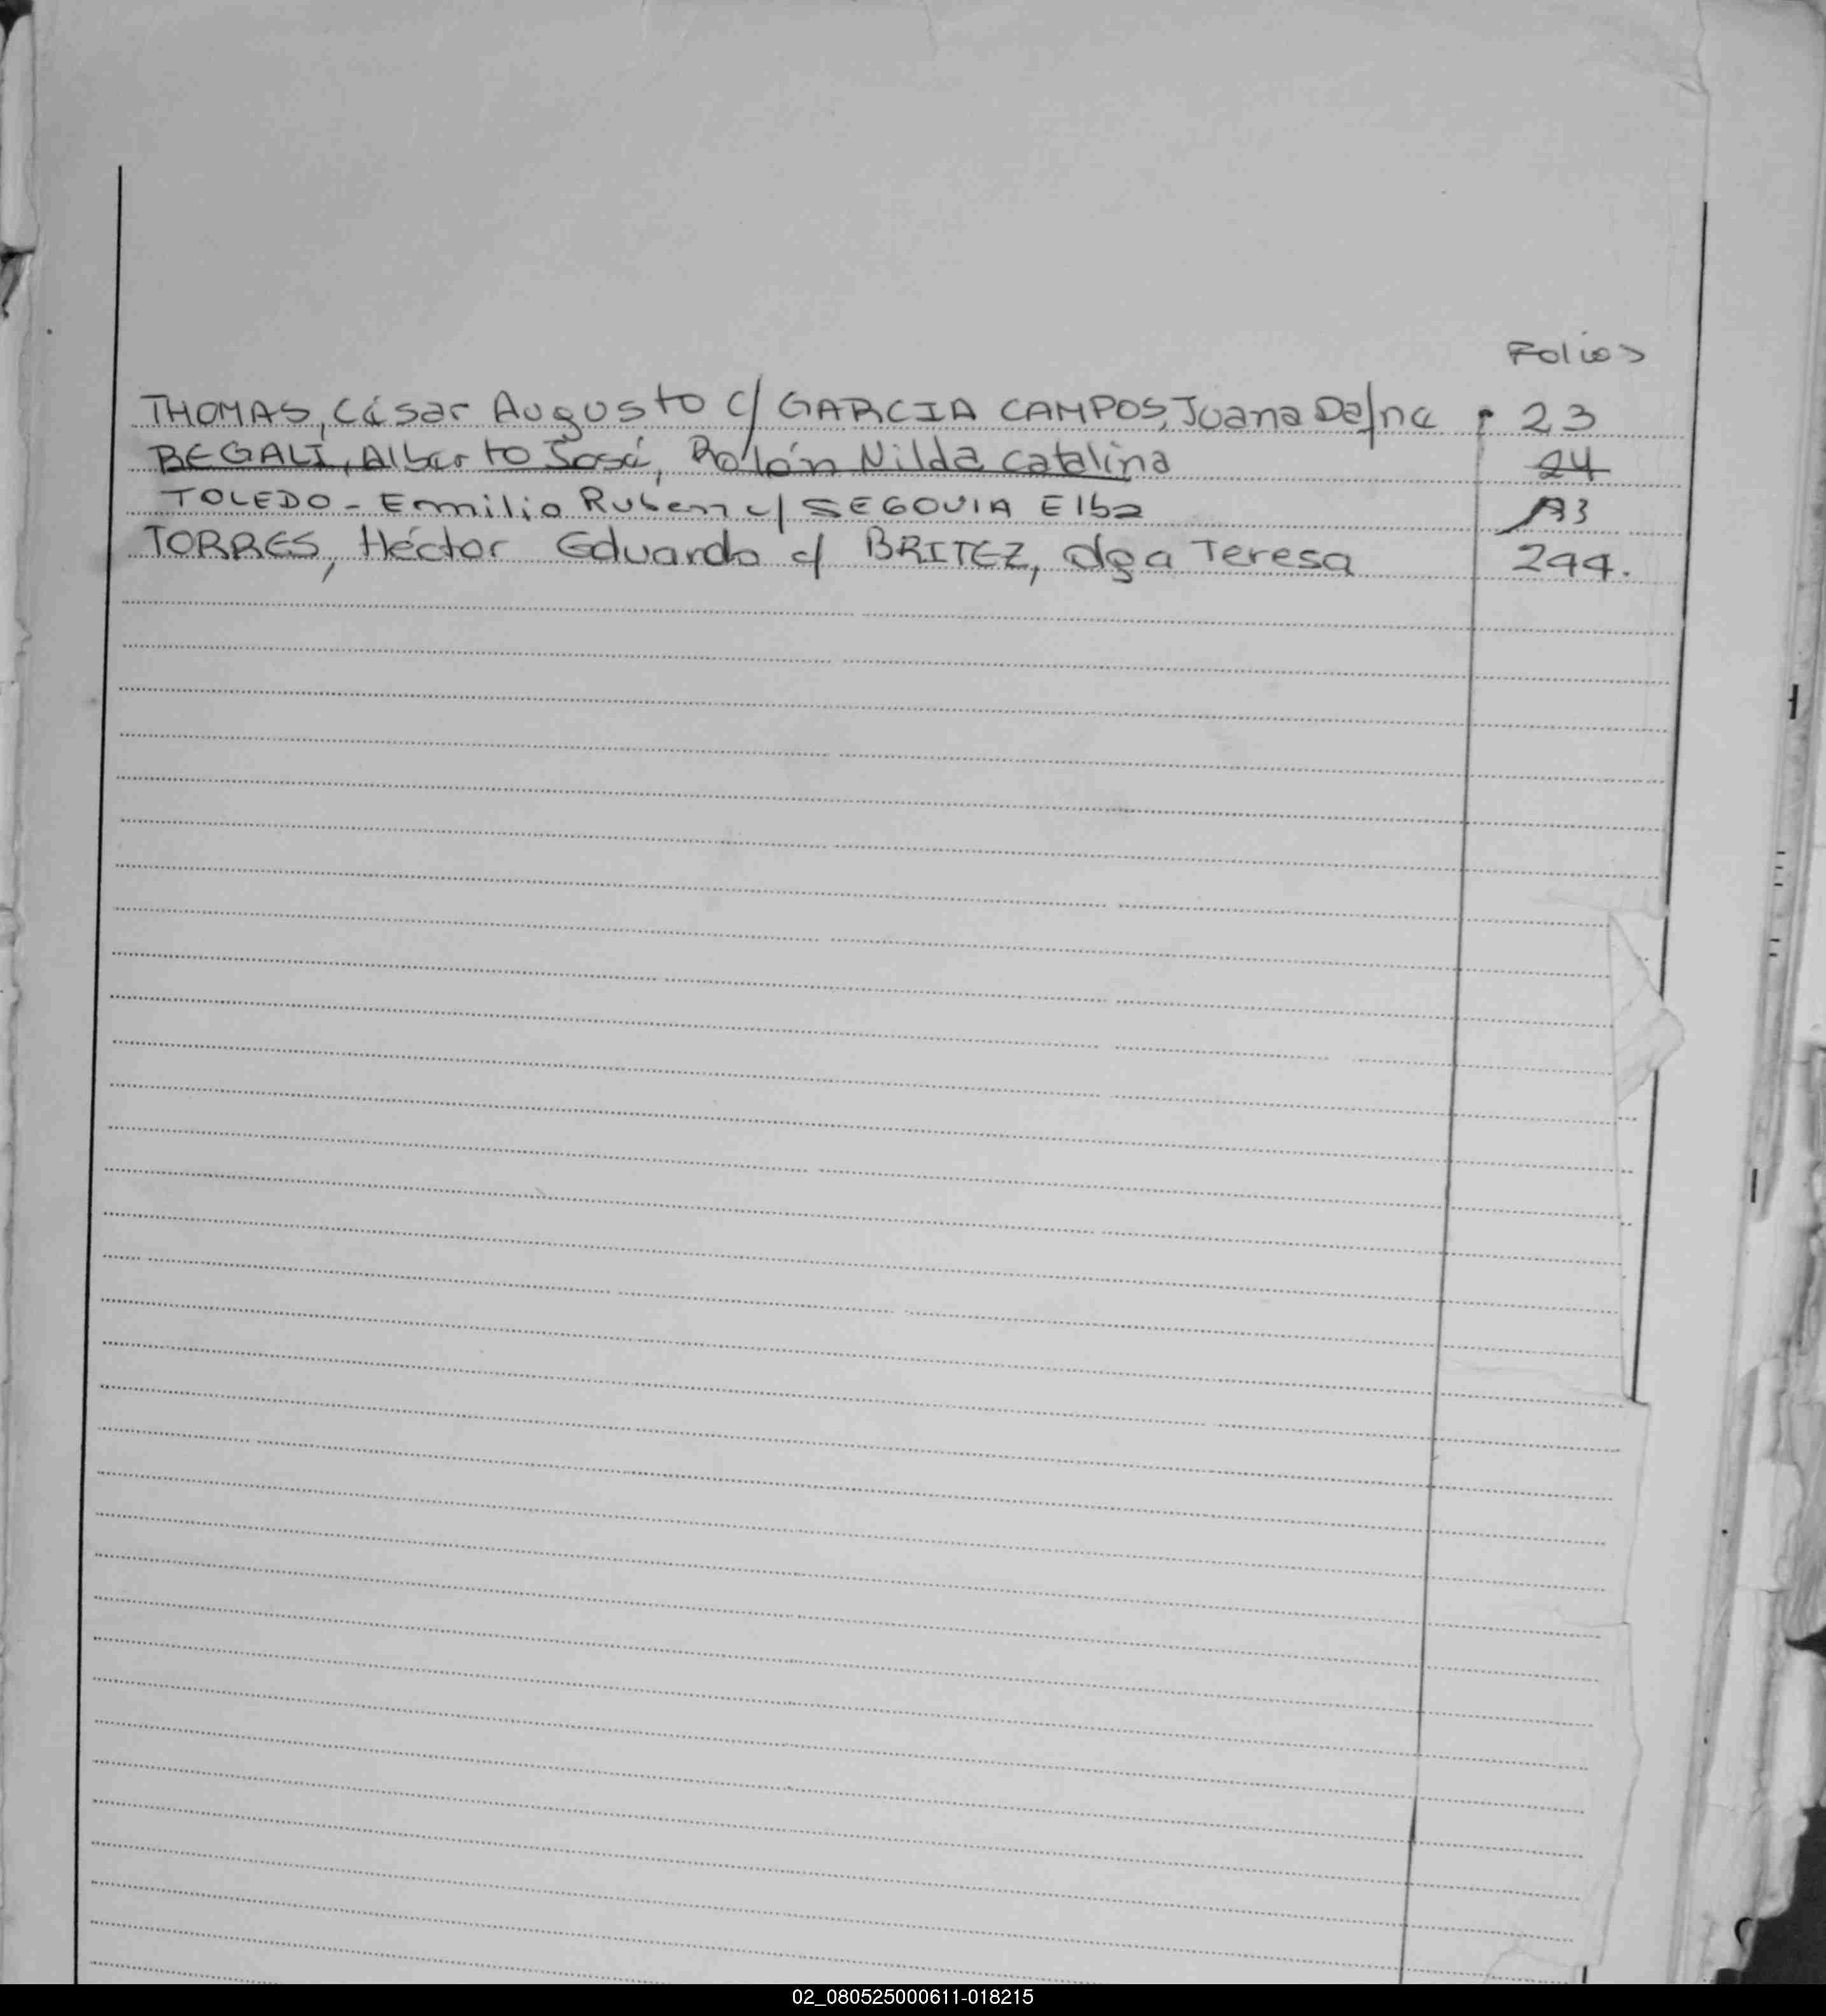 Folios
THOMAS, César Augusto c/ GARCIA CAMPOS, Juana Dafne 23
BEGALI, Alberto José, Rolón Nilda Catalina 24
TOLEDO - Emilio Ruben c/ SEGOVIA Elba
TORRES, Héctor Eduardo c/ BRITEZ, Olga Teresa 244.
02_080525000611-018215